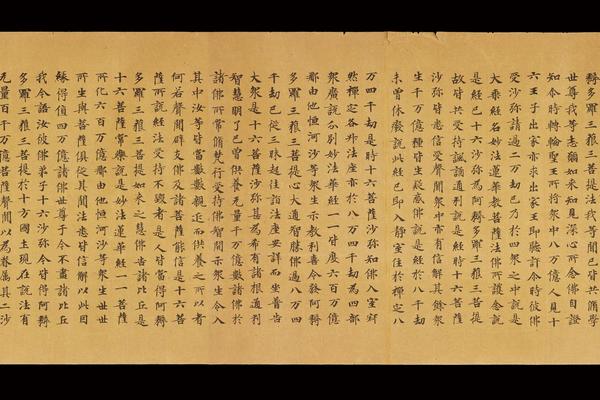 耨多羅三藐三菩提法我等聞已皆共脩學
世尊我等志願如来知見深心所念佛自證
知尒時轉輪聖王所將衆中八万億人見十
六王子出家亦求出家王即聽許尒時彼佛
受沙弥請過二万劫已乃於四衆之中說是
大乘經名妙法蓮華教菩薩法佛所護念說
是經已十六沙弥為阿耨多羅三藐三菩提
故皆共受持諷誦通利說是經時十六菩薩
沙弥皆悉信受聲聞衆中亦有信解其餘衆
生千万億種皆生疑惑佛說是經於八千劫
未曾休廢說此經已即入靜室住於禪定八
万四千劫是時十六菩薩沙弥知佛入室寂
然禪定各昇法座亦於八万四千劫為四部
衆廣說分別妙法華經一一皆度六百万億
那由他恒河沙等衆生示教利喜令發阿耨
多羅三藐三菩提心大通智勝佛過八万四
千劫已從三昧起往詣法座安詳而坐普告
大衆是十六菩薩沙弥甚為希有諸根通利
智慧明了已曾供養无量千万億數諸佛於
諸佛所常脩梵行受持佛智開示衆生令入
其中汝等皆當數數親近而供養之所以者
何若聲聞辟支佛及諸菩薩能信是十六菩
薩所說經法受持不毀者是人皆當得阿耨
多羅三藐三菩提如来之慧佛告諸比丘是
十六菩薩常樂說是妙法蓮華經一一菩薩
所化六百万億那由他恒河沙等衆生世世
所生與菩薩俱從其聞法悉皆信解以此因
緣得值四万億諸佛世尊于今不盡諸比丘
我今語汝彼佛弟子十六沙弥今皆得阿耨
多羅三藐三菩提於十方國土現在說法有
无量百千万億菩薩聲聞以為眷属其二沙